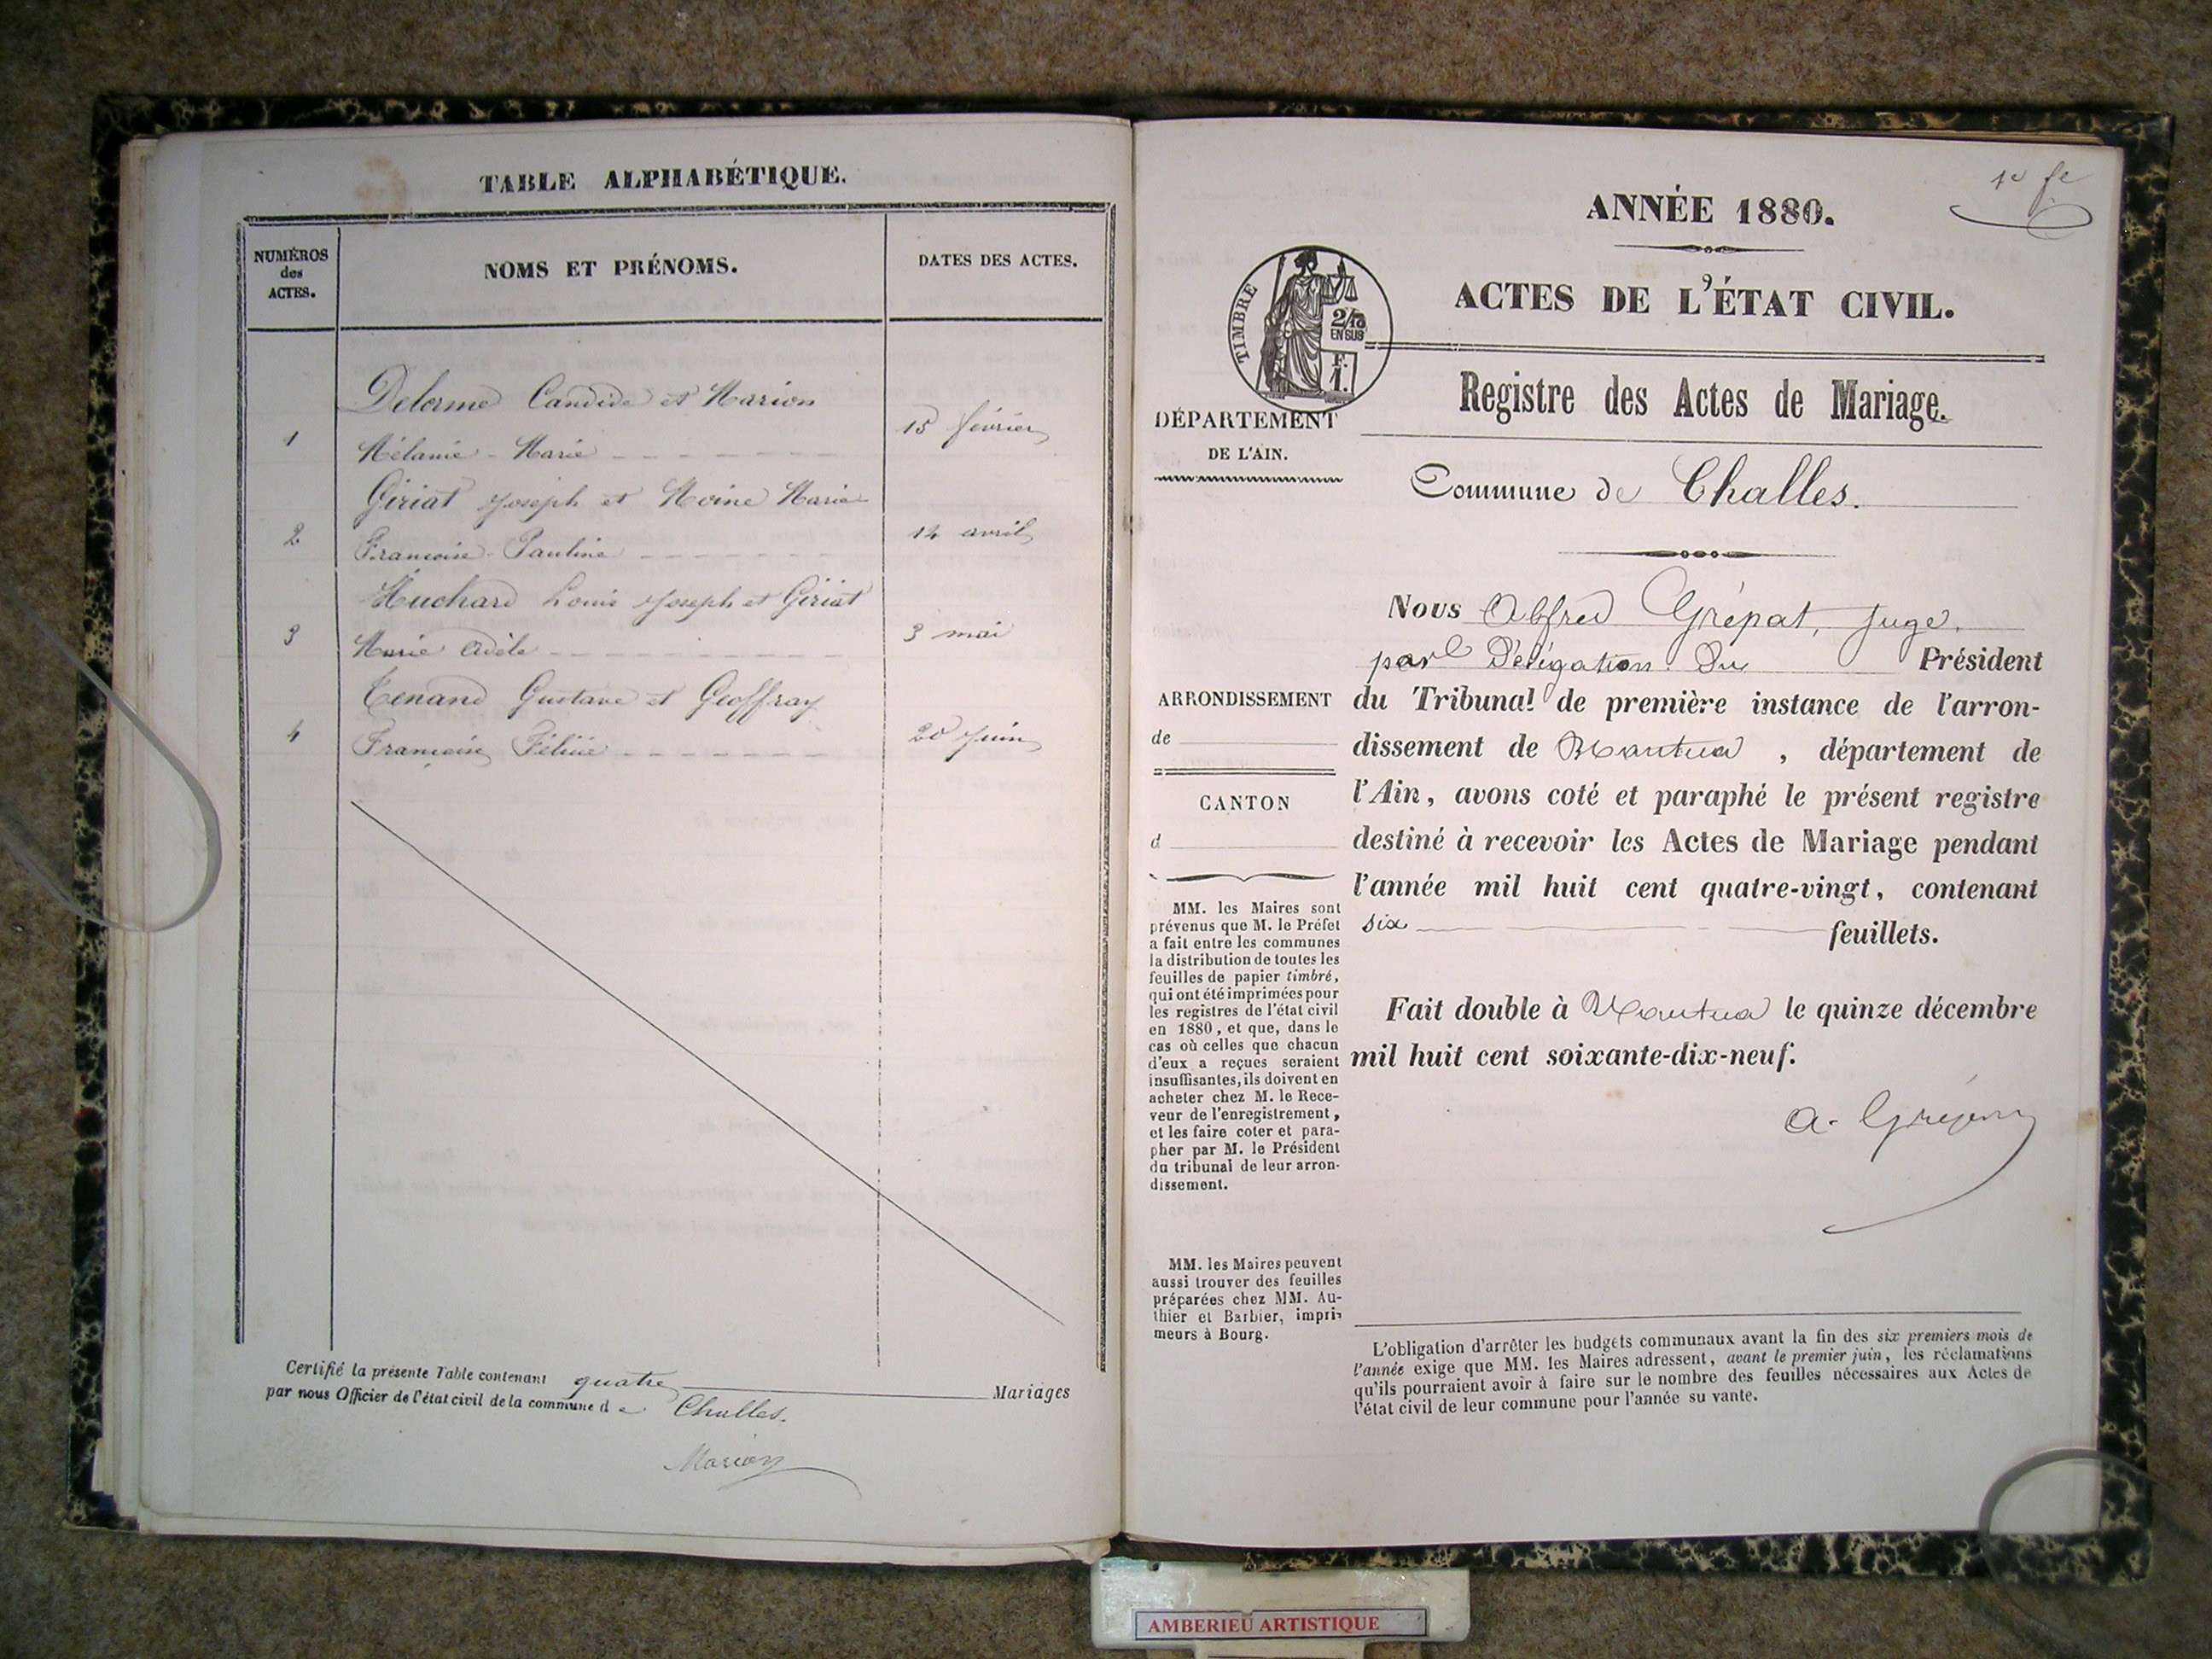 TABLE ALPHABÉTIQUE.
NUMÉROS
des
ACTES.
NOMS ET PRÉNOMS.
DATES DES ACTES.
Delorme Candide et Marion
1
15 février
Mélanie-Marie
Giriat Joseph et Moine Marie
2
14 avril
Françoise-Pauline
Huchard Louis Joseph et Giriat
3
3 mai
Marie Adèle
Tenand Gustave et Geoffray
4
20 Juin
Françoise
Certifié la présente Table contenant quatre Mariages
par nous Officier de l'état civil de la commune de Challes.
Marion
1er ft
ANNÉE 1880.
ACTES DE L'ÉTAT CIVIL.
TIMBRE
2/10
EN SUS
F.
1.
Registre des Actes de Mariage.
DÉPARTEMENT
DE L'AIN.
Commune de Challes.
Nous Alfred Grépat, Juge,
par Délégation du Président
ARRONDISSEMENT
de
CANTON
d
du Tribunal de première instance de l'arron-
dissement de Nantua, département de
l'Ain, avons coté et paraphé le présent registre
destiné à recevoir les Actes de Mariage pendant
l'année mil huit cent quatre-vingt, contenant
six feuillets.
Fait double à Nantua le quinze décembre
mil huit cent soixante-dix-neuf.
MM. les Maires sont
prévenus que M. le Préfet
a fait entre les communes
la distribution de toutes les
feuilles de papier timbré,
qui ont été imprimées pour
les registres de l'état civil
en 1880, et que, dans le
cas où celles que chacun
d'eux a reçues seraient
insuffisantes, ils doivent en
acheter chez M. le Rece-
veur de l'enregistrement,
et les faire coter et para-
pher par M. le Président
du tribunal de leur arron-
dissement.
MM. les Maires peuvent
aussi trouver des feuilles
préparées chez MM. Au-
thier et Barbier, impri-
meurs à Bourg.
L'obligation d'arrêter les budgets communaux avant la fin des six premiers mois de
l'année exige que MM. les Maires adressent, avant le premier juin, les réclamations
qu'ils pourraient avoir à faire sur le nombre des feuilles nécessaires aux Actes de
l'état civil de leur commune pour l'année su vante.
AMBERIEU ARTISTIQUE